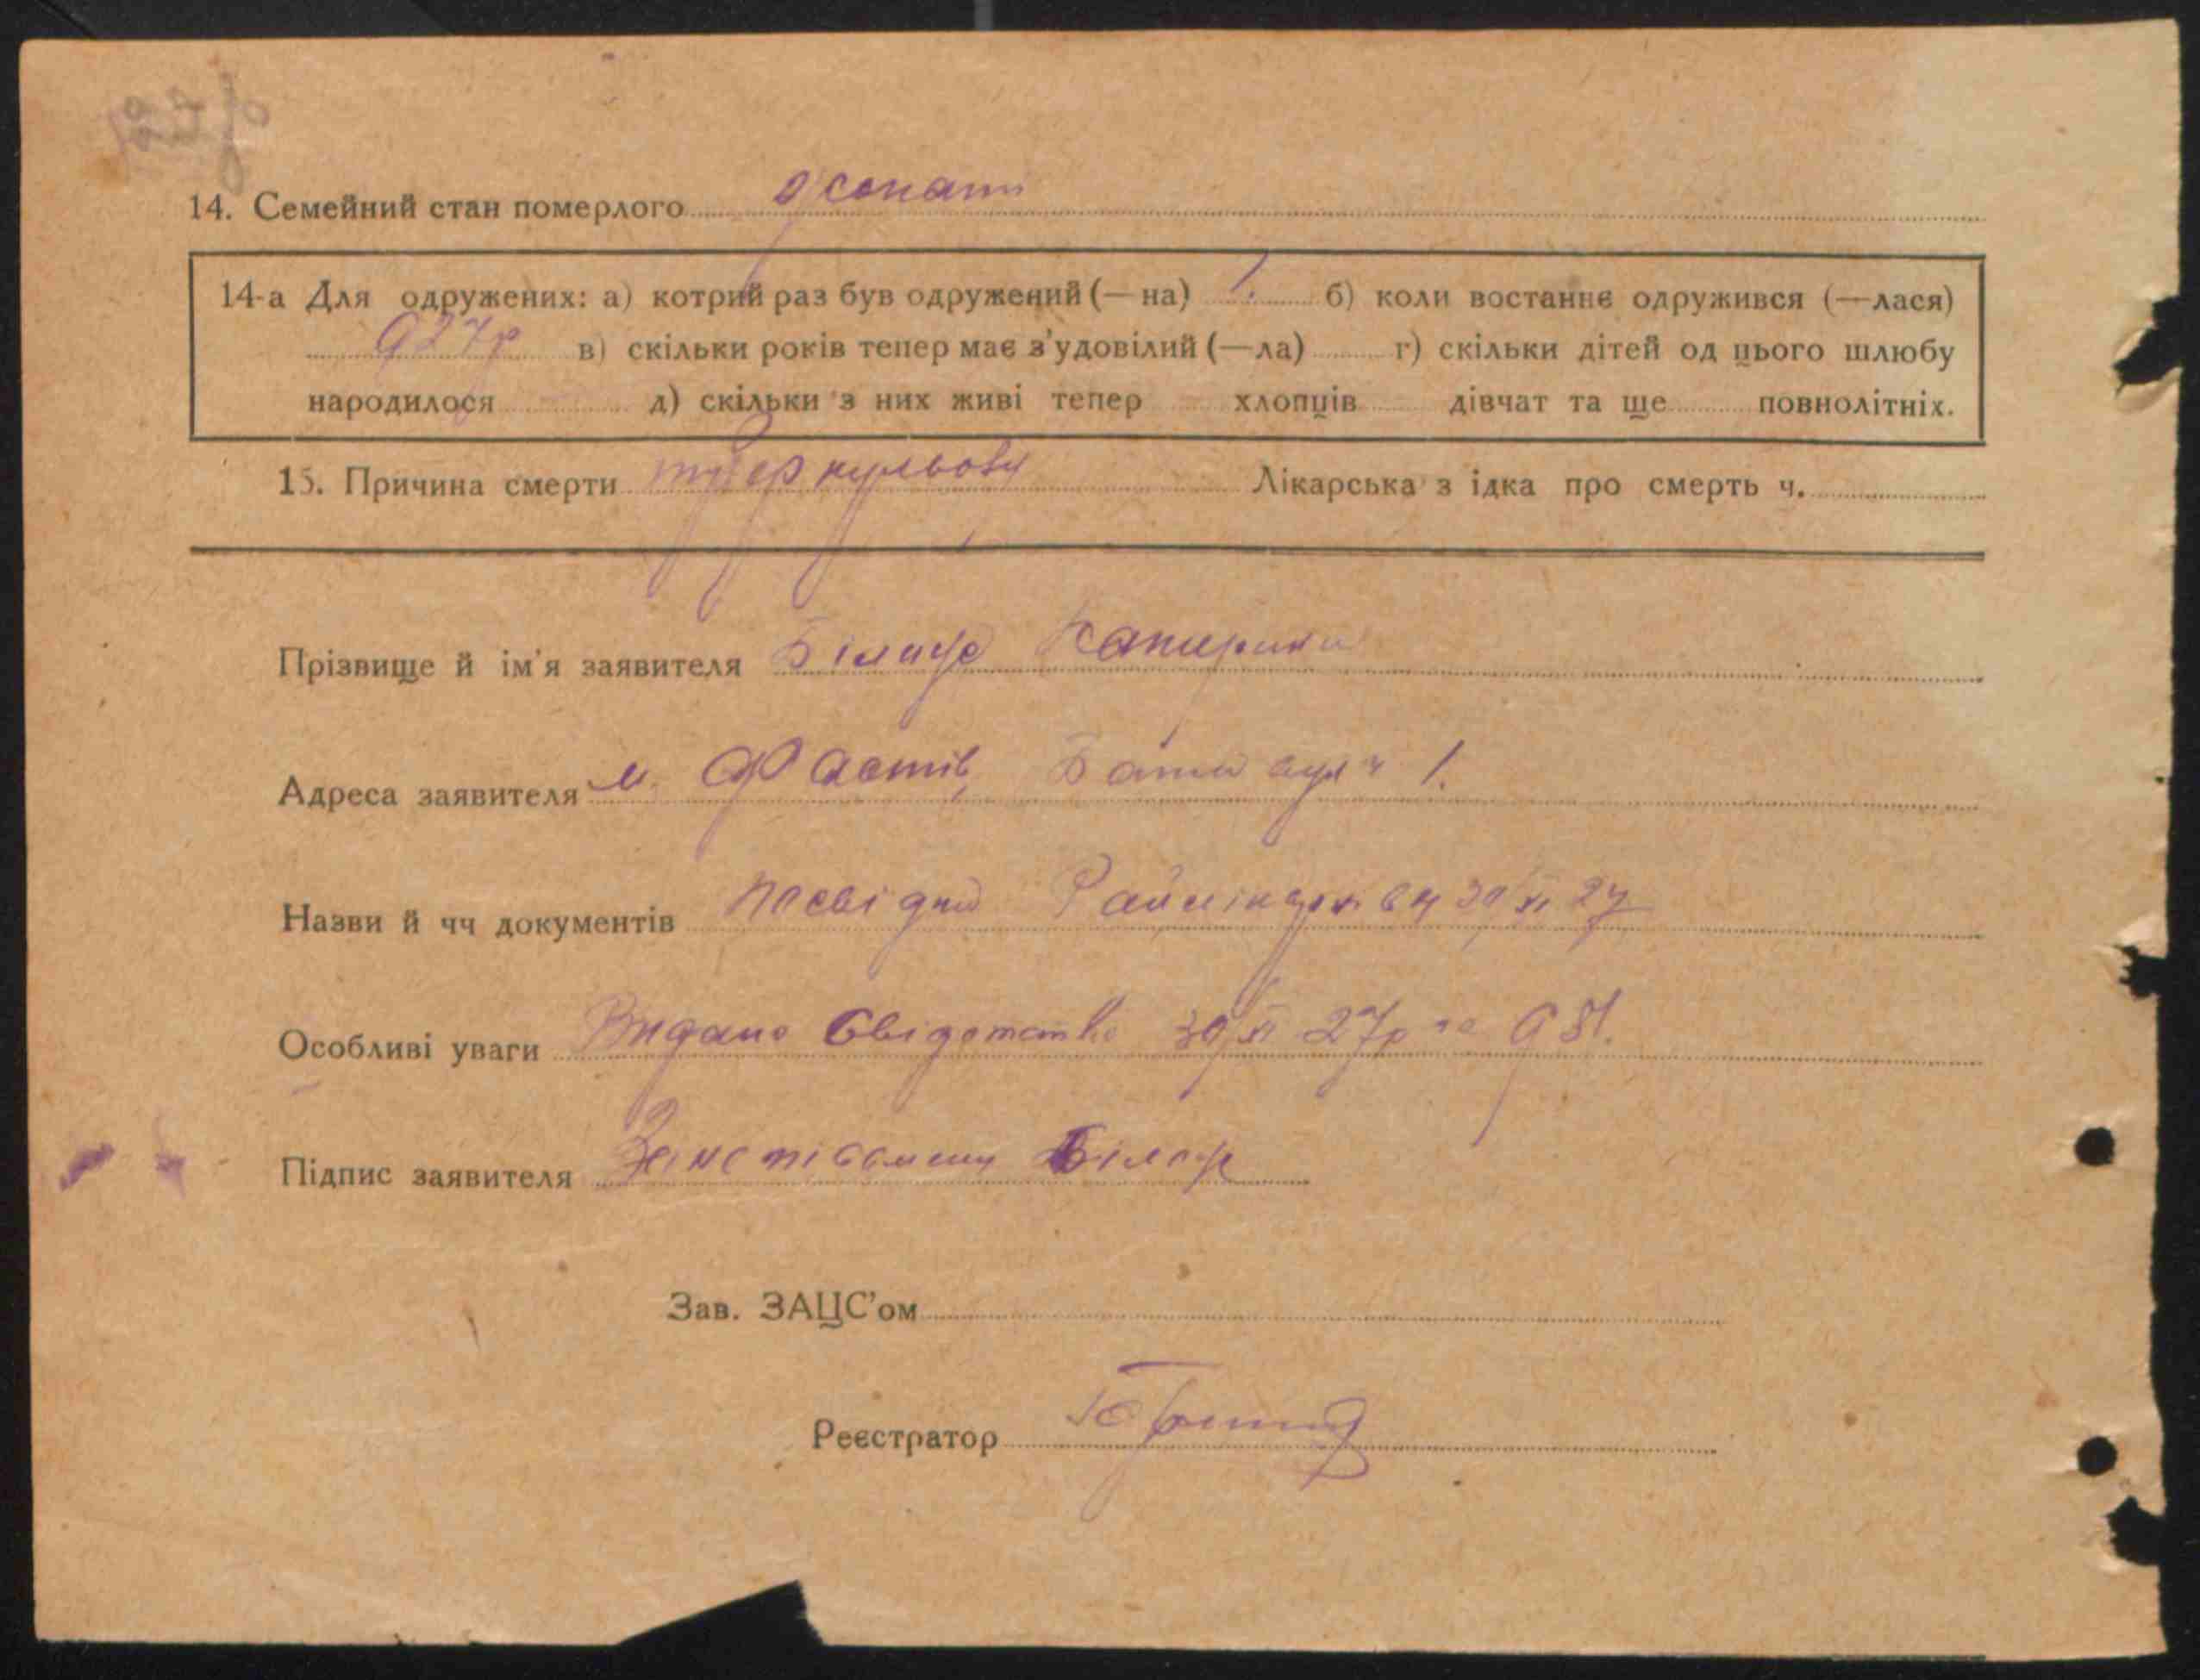 14. Семейний стан померлого жонат
14-а Для одружених: а) котрий раз був одружений (—на) 1. б) коли востаннє одружився (—лася)
927р в) скільки років тепер має з'удовілий (—ла) г) скільки дітей од цього шлюбу
народилося д) скільки з них живі тепер хлопців дівчат та ще повнолітніх.
15. Причина смерти туберкульозу Лікарська з ідка про смерть ч.
Прізвище й ім'я заявителя Катерина
Адреса заявителя м. Фастів, вул ч 1.
Назви й чч документів Посвідч 30/XI 27
Особливі уваги Видано Свідотство 30/XI 27р за 981.
Підпис заявителя
Зав. ЗАЦС'ом
Реєстратор